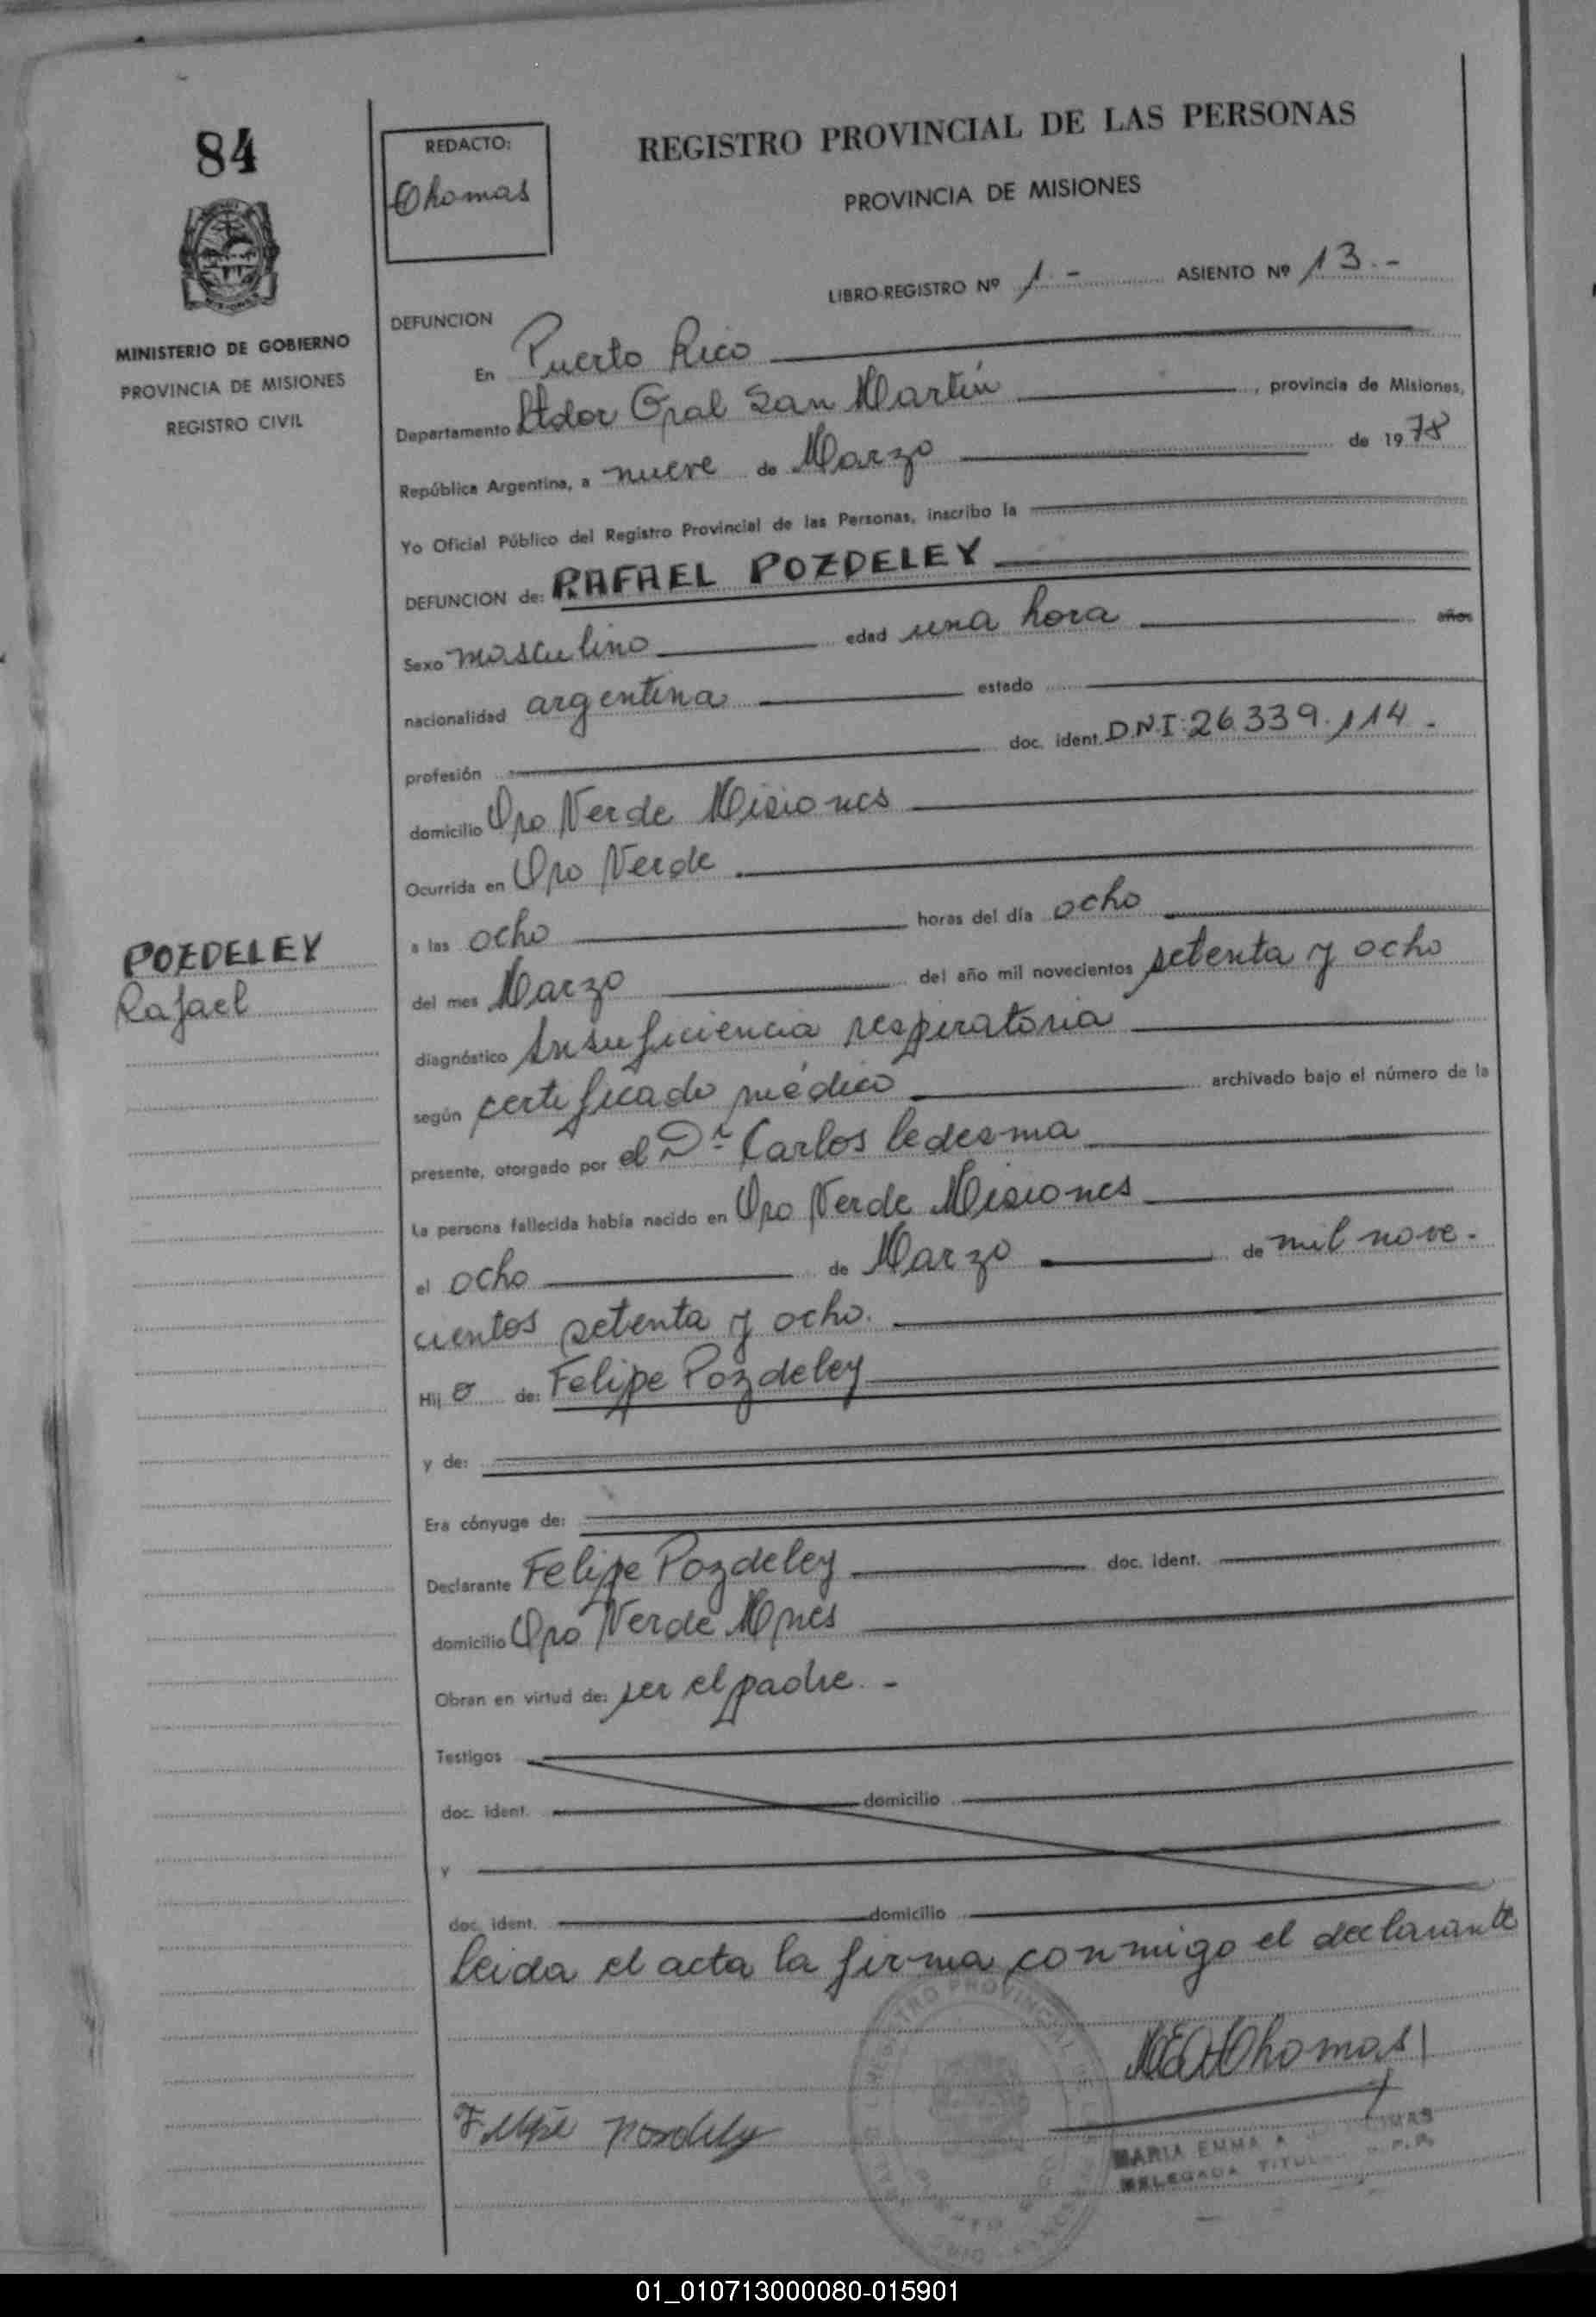 84
REDACTO:
Thomas
REGISTRO PROVINCIAL DE LAS PERSONAS
PROVINCIA DE MISIONES
LIBRO-REGISTRO Nº 1.- ASIENTO Nº 13.-
MINISTERIO DE GOBIERNO
PROVINCIA DE MISIONES
REGISTRO CIVIL
DEFUNCION
En Puerto Rico
Departamento Ltdor Gral San Martín, provincia de Misiones,
República Argentina, a nueve de Marzo de 1978
Yo Oficial Público del Registro Provincial de las Personas, inscribo la
DEFUNCION de: RAFAEL POZDELEY
Sexo masculino edad una hora años
nacionalidad argentina estado
profesión doc. ident. D.N.I: 26.339.114.
domicilio Oro Verde Misiones
Ocurrida en Oro Verde
a las ocho horas del día ocho
POZDELEY
Rafael
del mes Marzo del año mil novecientos setenta y ocho
diagnóstico Insuficiencia respiratoria
según certificado médico archivado bajo el número de la
presente, otorgado por el Dr Carlos Ledesma
La persona fallecida había nacido en Oro Verde Misiones
el ocho de Marzo de mil nove.
cientos setenta y ocho.
Hij o de: Felipe Pozdeley
y de:
Era cónyuge de:
Declarante Felipe Pozdeley doc. ident.
domicilio Oro Verde Mnes
Obran en virtud de: ser el padre.-
Testigos
doc. ident. domicilio
y
doc. ident. domicilio
Leida el acta la firma conmigo el declarante
REGISTRO PROVINCIAL
Thomas
Felipe Pozdeley
MARIA EMMA A
DELEGADA TITUL
01_010713000080-015901